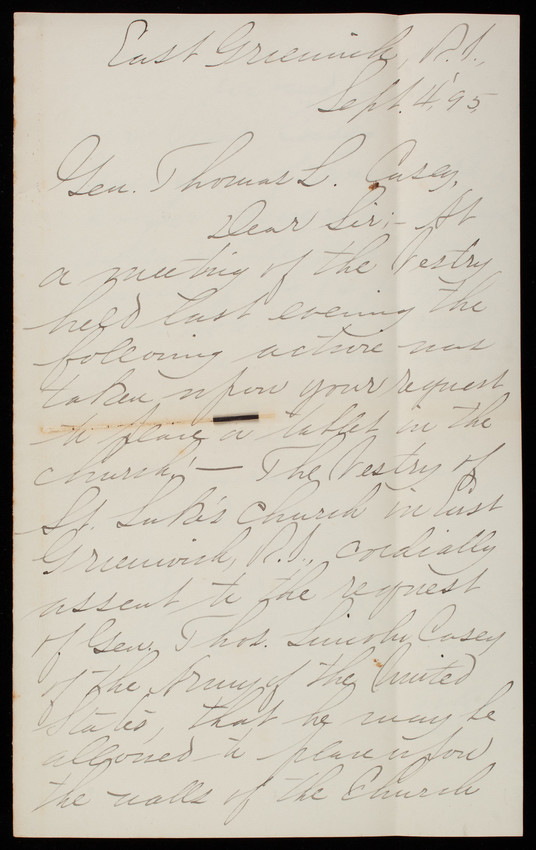 East Greenwich, R.I.,
Sept. 4, '95,
Gen. Thomas L. Casey,
Dear Sir:- At
a meeting of the Vestry
held last evening the
following action was
taken upon your request
to place a tablet in the
church:— The Vestry of
St. Luke's Church in East
Greenwich, R.I., cordially
assent to the request
of Gen. Thos. Lincoln Casey
of the Army of the United
States, that he may be
allowed to place upon
the walls of the Church